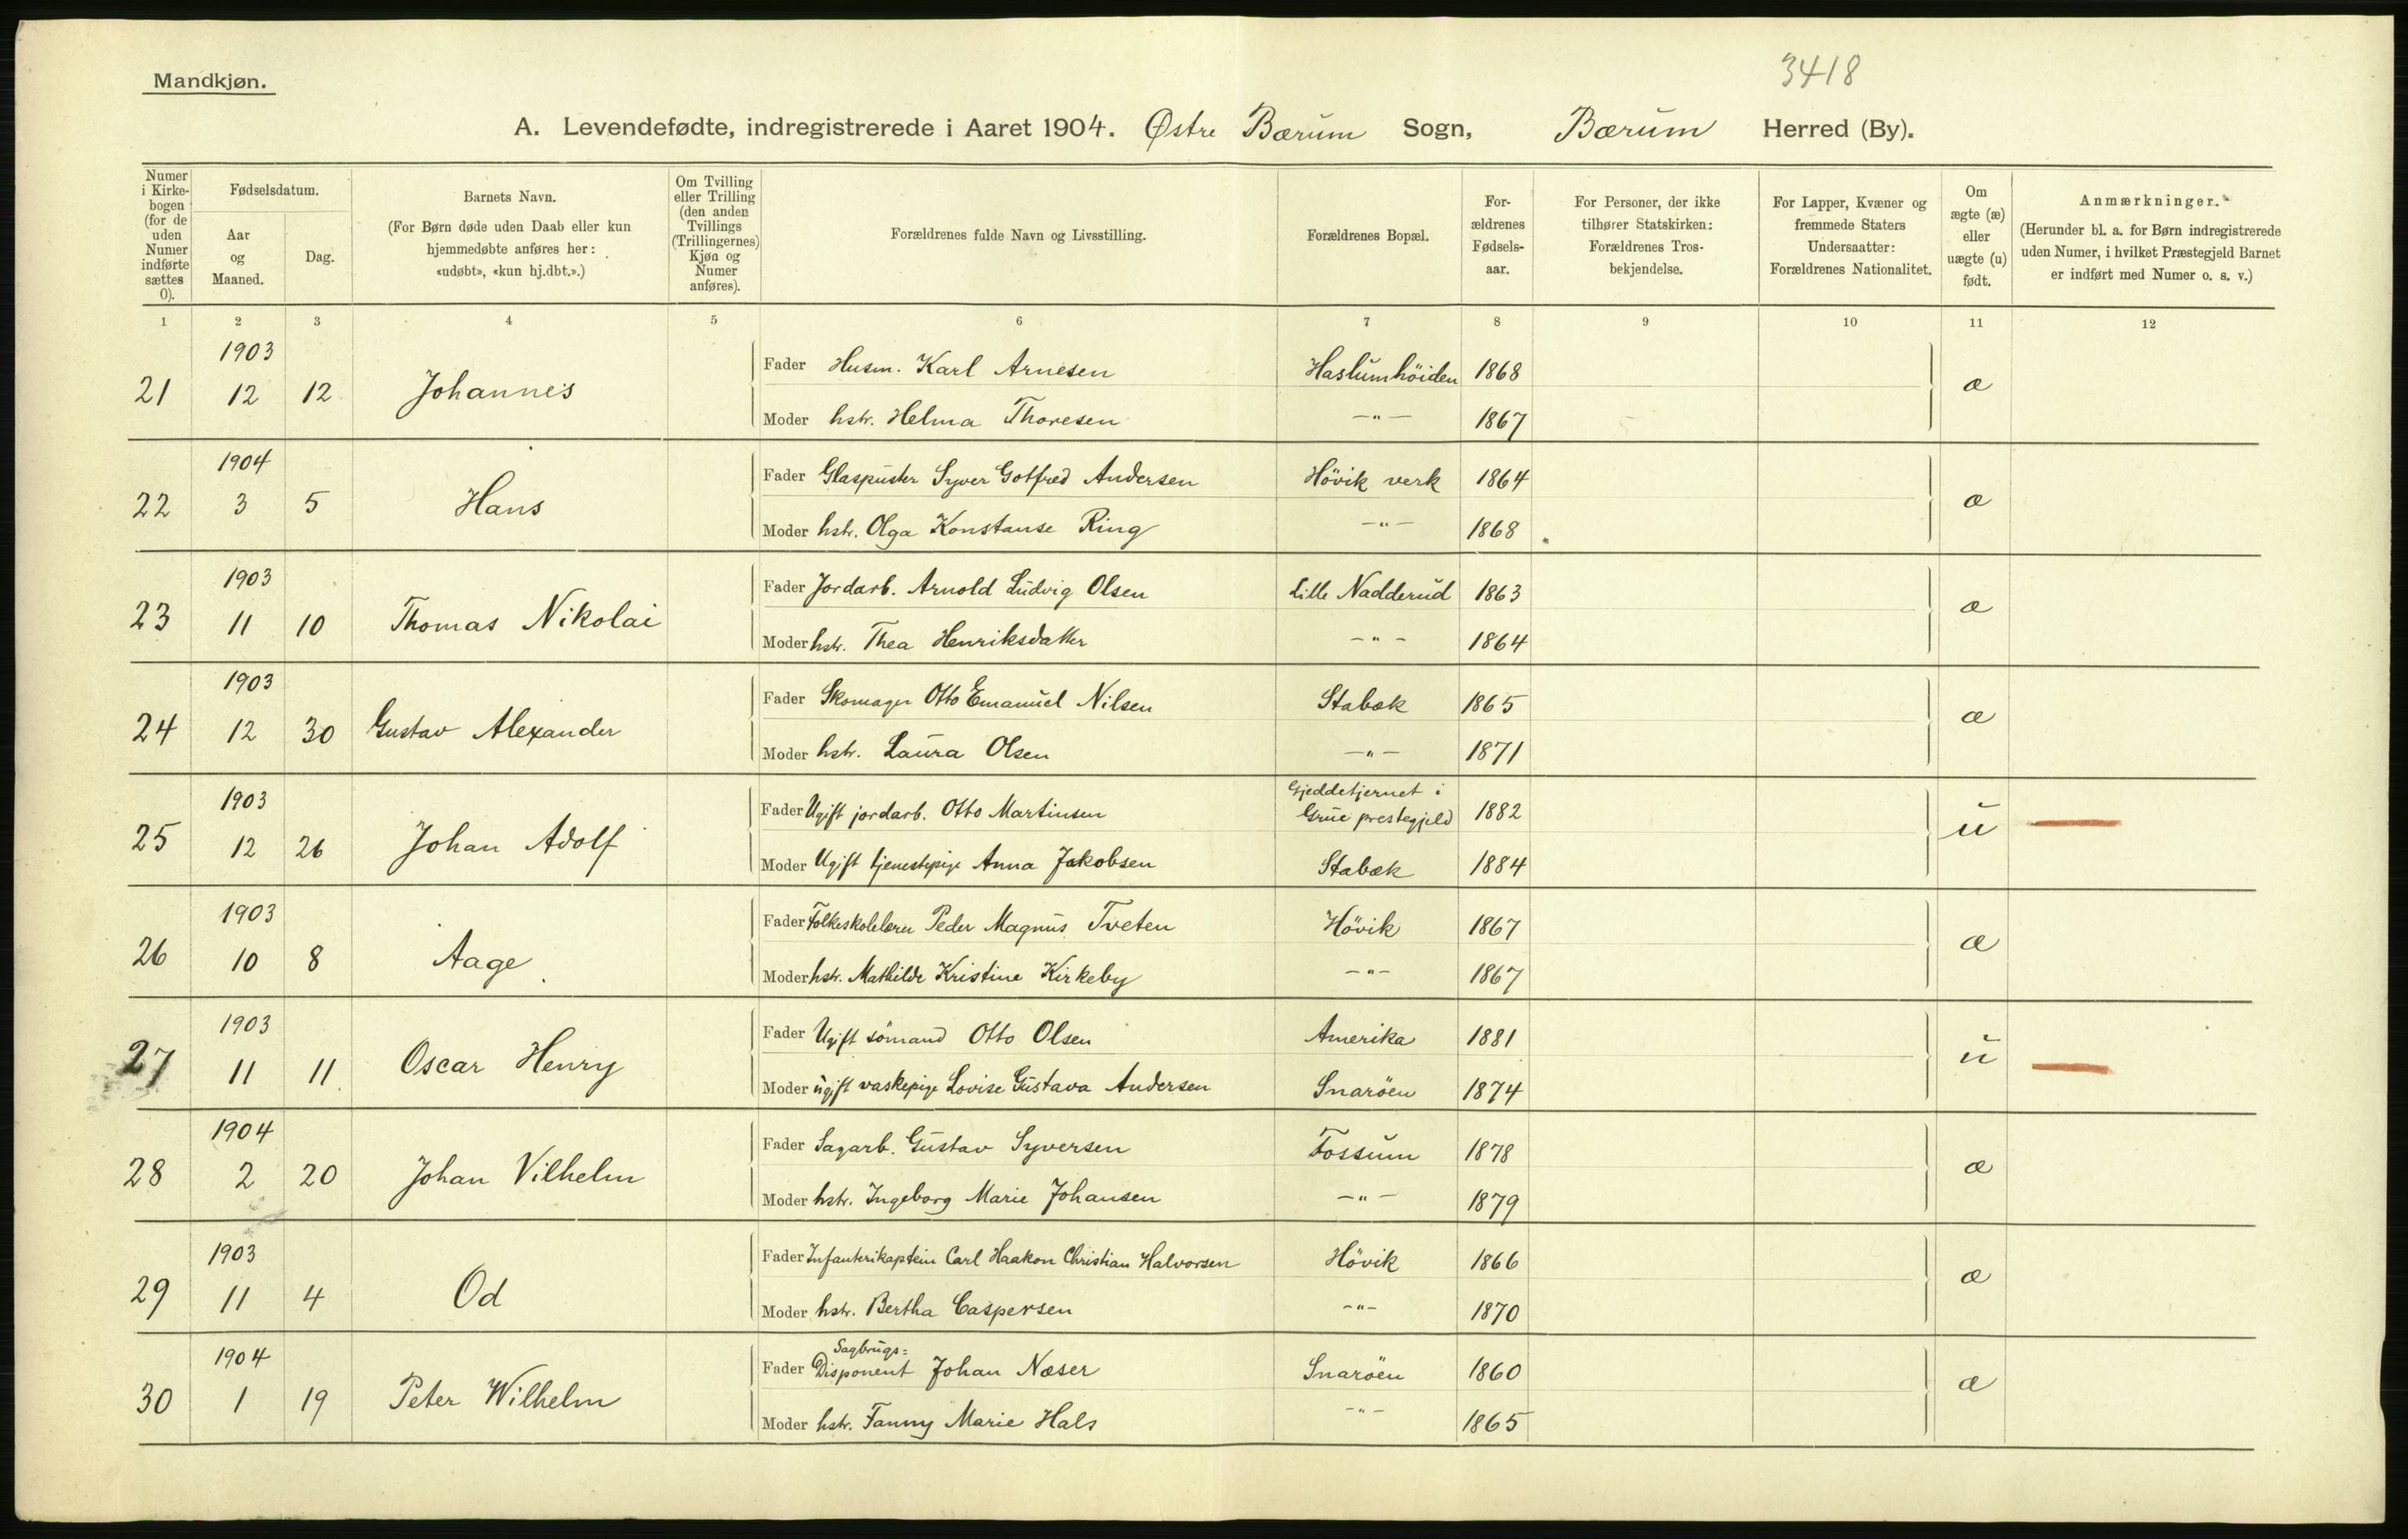 3418
Mandkjøn.
A. Levendefødte, indregistrerede i Aaret 1904. Østre Bærum Sogn, Bærum Herred (By).
Numer i Kirkebogen (for de uden Numer indførte sættes 0).
Fødselsdatum.
Aar og Maaned.
Dag.
Barnets Navn.
(For Børn døde uden Daab eller kun hjemmedøbte anføres her: «udøbt», «kun hj.dbt.».)
Om Tvilling eller Trilling (den anden Tvillings (Trillingernes) Kjøn og Numer anføres).
Forældrenes fulde Navn og Livsstilling.
Forældrenes Bopæl.
Forældrenes Fødselsaar.
For Personer, der ikke tilhører Statskirken: Forældrenes Trosbekjendelse.
For Lapper, Kvæner og fremmede Staters Undersaatter: Forældrenes Nationalitet.
Om ægte (æ) eller uægte (u) født.
Anmærkninger.
(Herunder bl. a. for Børn indregistrerede uden Numer, i hvilket Præstegjeld Barnet er indført med Numer o. s. v.)
1 2 3 4 5 6 7 8 9 10 11 12
1903
21 12 12 Johannes
Fader Husm. Karl Arnesen Haslumhöiden 1868
Moder hstr. Helma Thoresen —"— 1867
æ
1904
22 3 5 Hans
Fader Glaspuster Syver Gotfred Andersen Hövik verk 1864
Moder hstr. Olga Konstanse Ring —"— 1868
æ
1903
23 11 10 Thomas Nikolai
Fader Jordarb. Arnold Ludvig Olsen Lille Nadderud 1863
Moder hstr. Thea Henriksdatter —"— 1864
æ
1903
24 12 30 Gustav Alexander
Fader Skomager Otto Emanuel Nilsen Stabæk 1865
Moder hstr. Laura Olsen —"— 1871
æ
1903
25 12 26 Johan Adolf
Fader Ugift jordarb. Otto Martinsen Gjeddetjernet i Grue prestegjeld 1882
Moder Ugift tjenestepige Anna Jakobsen Stabæk 1884
u
1903
26 10 8 Aage
Fader Folkeskolelærer Peder Magnus Tveten Hövik 1867
Moder hstr. Mathilde Kristine Kirkeby —"— 1867
æ
1903
27 11 11 Oscar Henry
Fader Ugift sömand Otto Olsen Amerika 1881
Moder ugift vaskepige Lovise Gustava Andersen Snaröen 1874
u
1904
28 2 20 Johan Vilhelm
Fader Sagarb. Gustav Syversen Fossum 1878
Moder hstr. Ingeborg Marie Johansen —"— 1879
æ
1903
29 11 4 Od
Fader Infanterikaptein Carl Haakon Christian Halvorsen Hövik 1866
Moder hstr. Bertha Caspersen —"— 1870
æ
1904
30 1 19 Peter Wilhelm
Fader Sagbrugs= Disponent Johan Næser Snaröen 1860
Moder hstr. Fanny Marie Hals —"— 1865
æ